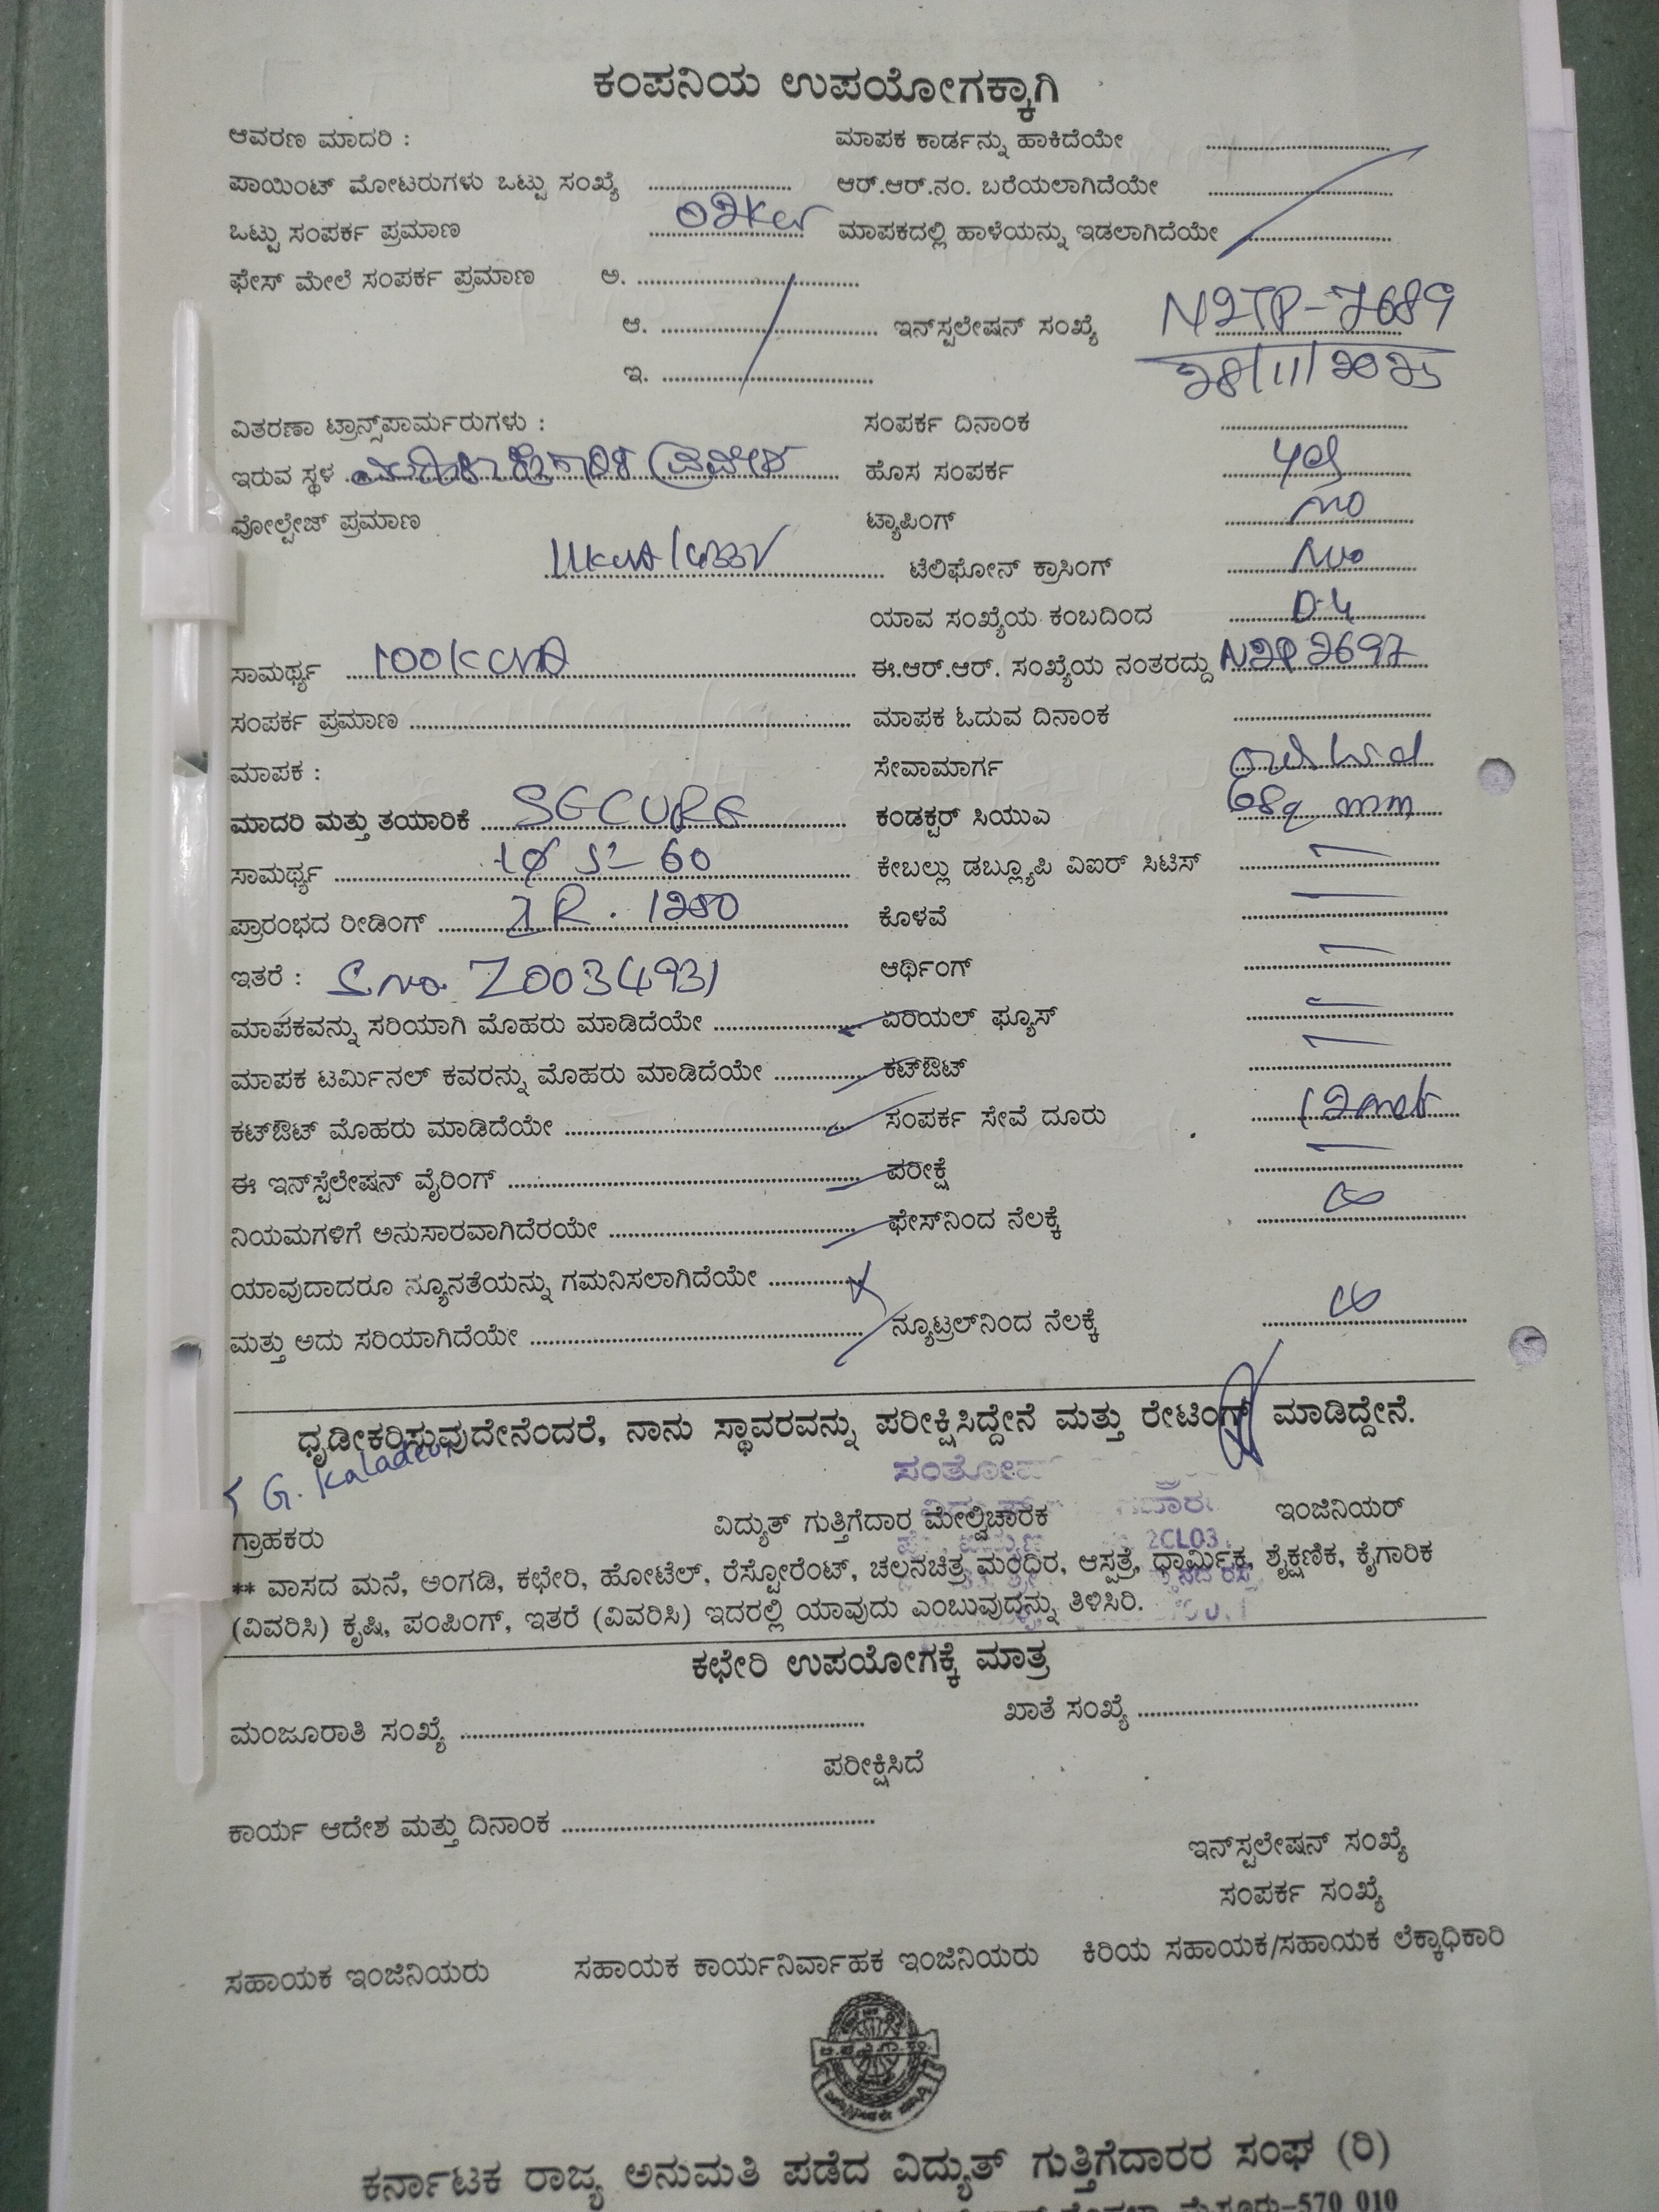 ಕಂಪನಿಯ ಉಪಯೋಗಕ್ಕಾಗಿ
ಆವರಣ ಮಾದರಿ : ಮಾಪಕ ಕಾರ್ಡನ್ನು ಹಾಕಿದೆಯೇ ..........
ಪಾಯಿಂಟ್ ಮೋಟರುಗಳು ಒಟ್ಟು ಸಂಖ್ಯೆ .......... ಆರ್.ಆರ್.ನಂ. ಬರೆಯಲಾಗಿದೆಯೇ ..........
ಒಟ್ಟು ಸಂಪರ್ಕ ಪ್ರಮಾಣ 02kw ಮಾಪಕದಲ್ಲಿ ಹಾಳೆಯನ್ನು ಇಡಲಾಗಿದೆಯೇ ..........
ಫೇಸ್ ಮೇಲೆ ಸಂಪರ್ಕ ಪ್ರಮಾಣ ಅ. ..........
ಆ. .......... ಇನ್‌ಸ್ಟಲೇಷನ್ ಸಂಖ್ಯೆ N2TP-7689
ಇ. .......... 28/11/2025
ವಿತರಣಾ ಟ್ರಾನ್ಸ್‌ಪಾರ್ಮರುಗಳು : ಸಂಪರ್ಕ ದಿನಾಂಕ ..........
ಇರುವ ಸ್ಥಳ ಹೊಸ ಸಂಪರ್ಕ yes
ವೋಲ್ಟೇಜ್ ಪ್ರಮಾಣ ಟ್ಯಾಪಿಂಗ್ no
11kva/433V ಟೆಲಿಫೋನ್ ಕ್ರಾಸಿಂಗ್ No
ಯಾವ ಸಂಖ್ಯೆಯ ಕಂಬದಿಂದ D-4
ಸಾಮರ್ಥ್ಯ 100kva ಈ.ಆರ್.ಆರ್. ಸಂಖ್ಯೆಯ ನಂತರದ್ದು N2P2697
ಸಂಪರ್ಕ ಪ್ರಮಾಣ .......... ಮಾಪಕ ಓದುವ ದಿನಾಂಕ ..........
ಮಾಪಕ : ಸೇವಾಮಾರ್ಗ
ಮಾದರಿ ಮತ್ತು ತಯಾರಿಕೆ SECURE ಕಂಡಕ್ಟರ್ ಸಿಯುಎ 6sq mm
ಸಾಮರ್ಥ್ಯ 1φ 5-60 ಕೇಬಲ್ಲು ಡಬ್ಲ್ಯೂಪಿ ವಿಐರ್ ಸಿಟಿಸ್ —
ಪ್ರಾರಂಭದ ರೀಡಿಂಗ್ IR. 1250 ಕೊಳವೆ —
ಇತರೆ : S.no. Z0034931 ಆರ್ಥಿಂಗ್ —
ಮಾಪಕವನ್ನು ಸರಿಯಾಗಿ ಮೊಹರು ಮಾಡಿದೆಯೇ .......... ಏರಿಯಲ್ ಫ್ಯೂಸ್ —
ಮಾಪಕ ಟರ್ಮಿನಲ್ ಕವರನ್ನು ಮೊಹರು ಮಾಡಿದೆಯೇ .......... ಕಟ್‌ಔಟ್ —
ಕಟ್‌ಔಟ್ ಮೊಹರು ಮಾಡಿದೆಯೇ .......... ಸಂಪರ್ಕ ಸೇವೆ ದೂರು 12met
ಈ ಇನ್‌ಸ್ಟೆಲೇಷನ್ ವೈರಿಂಗ್ .......... ಪರೀಕ್ಷೆ —
ನಿಯಮಗಳಿಗೆ ಅನುಸಾರವಾಗಿದೆರಯೇ .......... ಫೇಸ್‌ನಿಂದ ನೆಲಕ್ಕೆ ∞
ಯಾವುದಾದರೂ ನ್ಯೂನತೆಯನ್ನು ಗಮನಿಸಲಾಗಿದೆಯೇ ..........
ಮತ್ತು ಅದು ಸರಿಯಾಗಿದೆಯೇ .......... ನ್ಯೂಟ್ರಲ್‌ನಿಂದ ನೆಲಕ್ಕೆ ∞
ಧೃಡೀಕರಿಸುವುದೇನೆಂದರೆ, ನಾನು ಸ್ಥಾವರವನ್ನು ಪರೀಕ್ಷಿಸಿದ್ದೇನೆ ಮತ್ತು ರೇಟಿಂಗ್ ಮಾಡಿದ್ದೇನೆ.
G.
ಗ್ರಾಹಕರು ವಿದ್ಯುತ್ ಗುತ್ತಿಗೆದಾರ ಮೇಲ್ವಿಚಾರಕ ಇಂಜಿನಿಯರ್
2CL03
** ವಾಸದ ಮನೆ, ಅಂಗಡಿ, ಕಛೇರಿ, ಹೋಟೆಲ್, ರೆಸ್ಟೋರೆಂಟ್, ಚಲನಚಿತ್ರ ಮಂಧಿರ, ಆಸ್ಪತ್ರೆ, ಧಾರ್ಮಿಕ, ಶೈಕ್ಷಣಿಕ, ಕೈಗಾರಿಕ
(ವಿವರಿಸಿ) ಕೃಷಿ, ಪಂಪಿಂಗ್, ಇತರೆ (ವಿವರಿಸಿ) ಇದರಲ್ಲಿ ಯಾವುದು ಎಂಬುವುದನ್ನು ತಿಳಿಸಿರಿ.
ಕಛೇರಿ ಉಪಯೋಗಕ್ಕೆ ಮಾತ್ರ
ಮಂಜೂರಾತಿ ಸಂಖ್ಯೆ .......... ಖಾತೆ ಸಂಖ್ಯೆ ..........
ಪರೀಕ್ಷಿಸಿದೆ
ಕಾರ್ಯ ಆದೇಶ ಮತ್ತು ದಿನಾಂಕ ..........
ಇನ್‌ಸ್ಟಲೇಷನ್ ಸಂಖ್ಯೆ
ಸಂಪರ್ಕ ಸಂಖ್ಯೆ
ಸಹಾಯಕ ಇಂಜಿನಿಯರು ಸಹಾಯಕ ಕಾರ್ಯನಿರ್ವಾಹಕ ಇಂಜಿನಿಯರು ಕಿರಿಯ ಸಹಾಯಕ/ಸಹಾಯಕ ಲೆಕ್ಕಾಧಿಕಾರಿ
ಕರ್ನಾಟಕ ರಾಜ್ಯ ಅನುಮತಿ ಪಡೆದ ವಿದ್ಯುತ್ ಗುತ್ತಿಗೆದಾರರ ಸಂಘ (ರಿ)
ಮೈಸೂರು-570 010